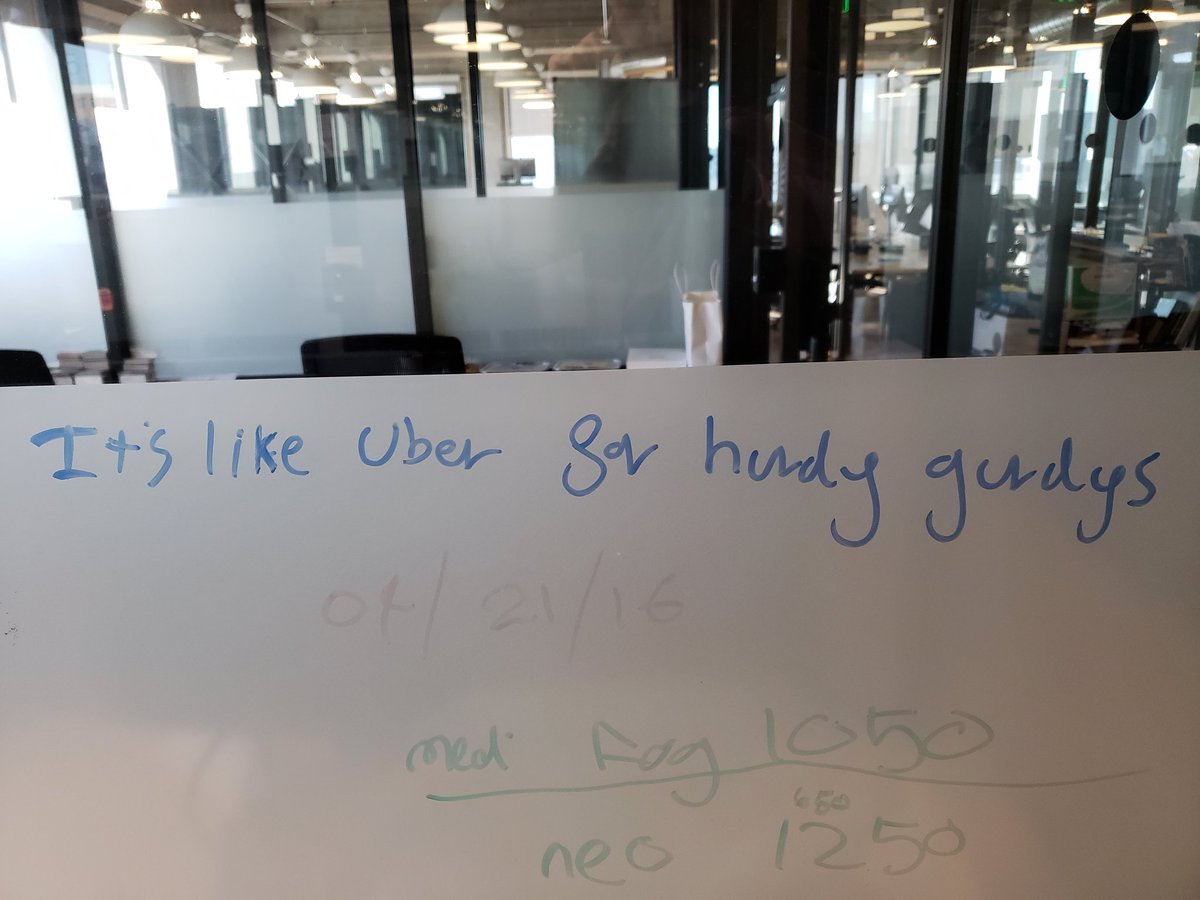 It's like Uber for hurdy gurdys
04/21/16
medi Fog 1050
650
neo 1250